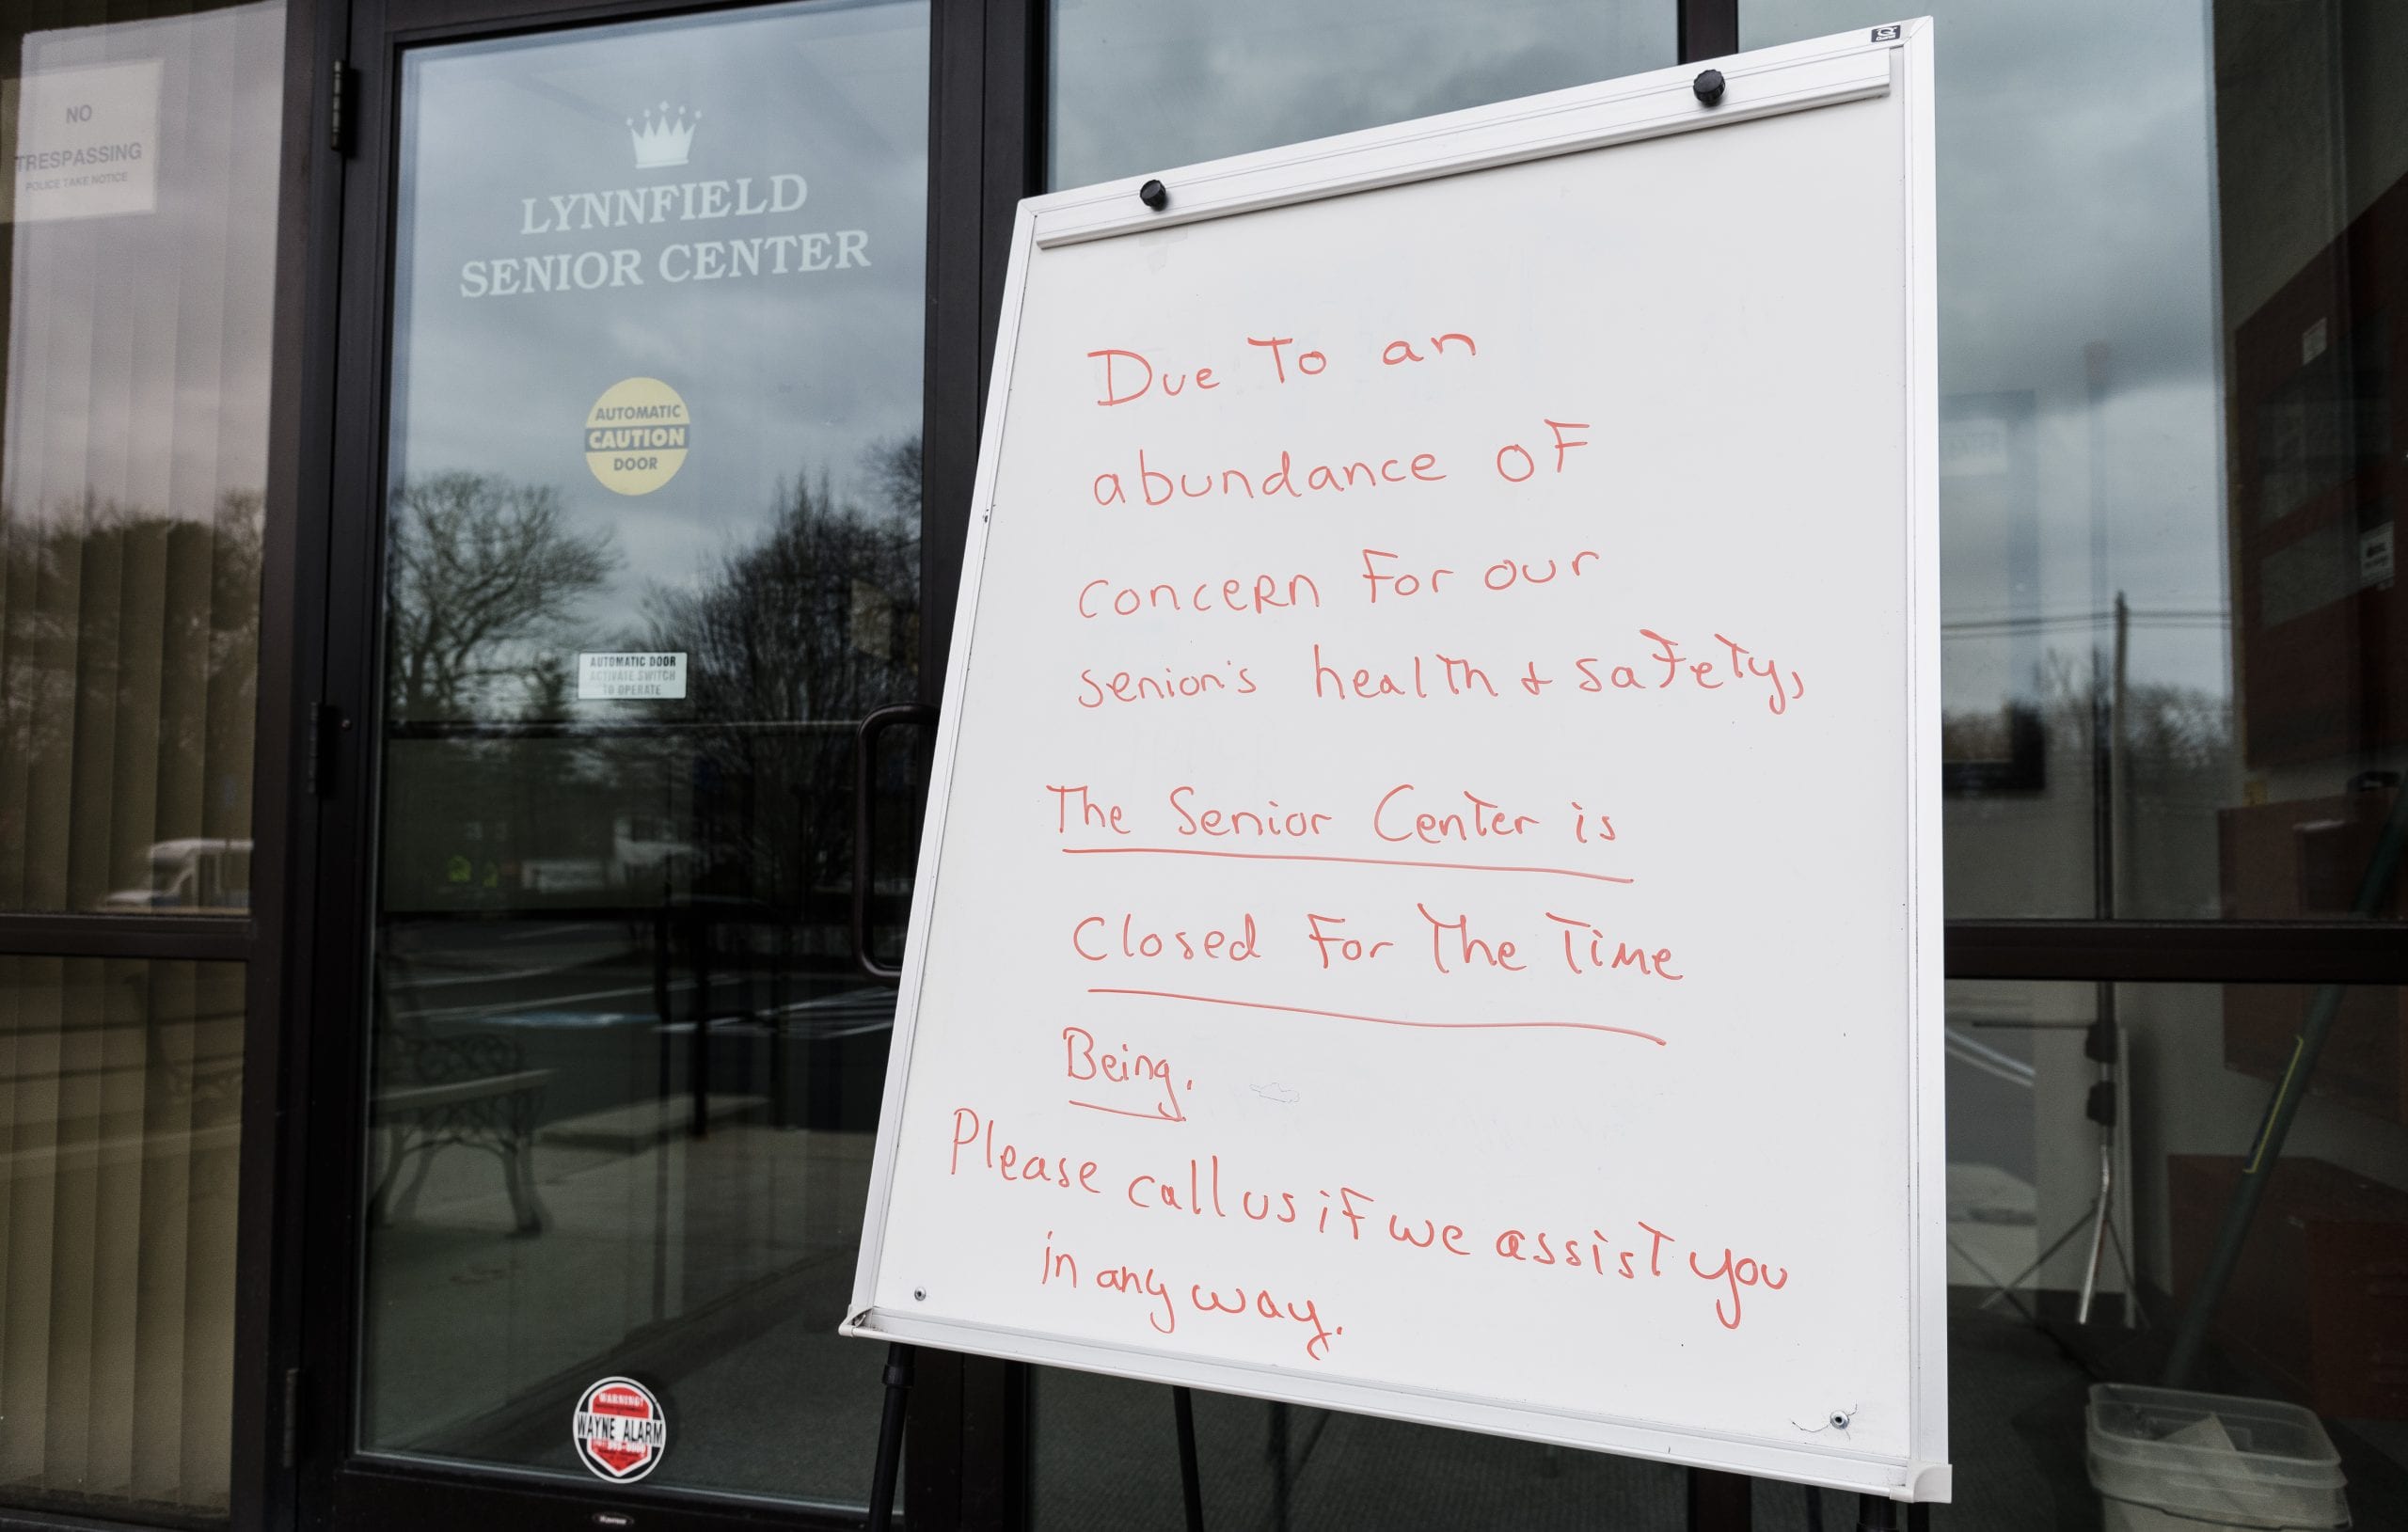 NO
TRESPASSING
POLICE TAKE NOTICE
LYNNFIELD
SENIOR CENTER
AUTOMATIC
CAUTION
DOOR
AUTOMATIC DOOR
ACTIVATE SWITCH
TO OPERATE
WARNING!
WAYNE ALARM
Due To an
abundance of
concern for our
senior's health & safety,
The Senior Center is
Closed For The Time
Being.
Please call us if we assist you
in any way.